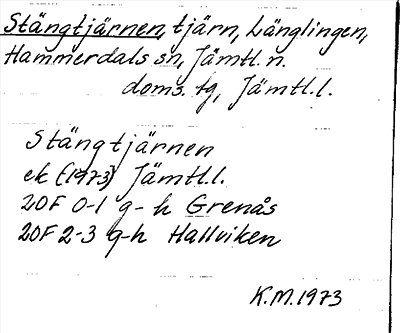 Stängtjärnen, tjärn, Länglingen,
Hammerdals sn, Jämtl. n.
doms. tg, Jämtl.l.
Stängtjärnen
ek (1973) Jämtl.l.
20F 0-1 g-h Grenås
20F 2-3 g-h Hallviken
K.M.1973